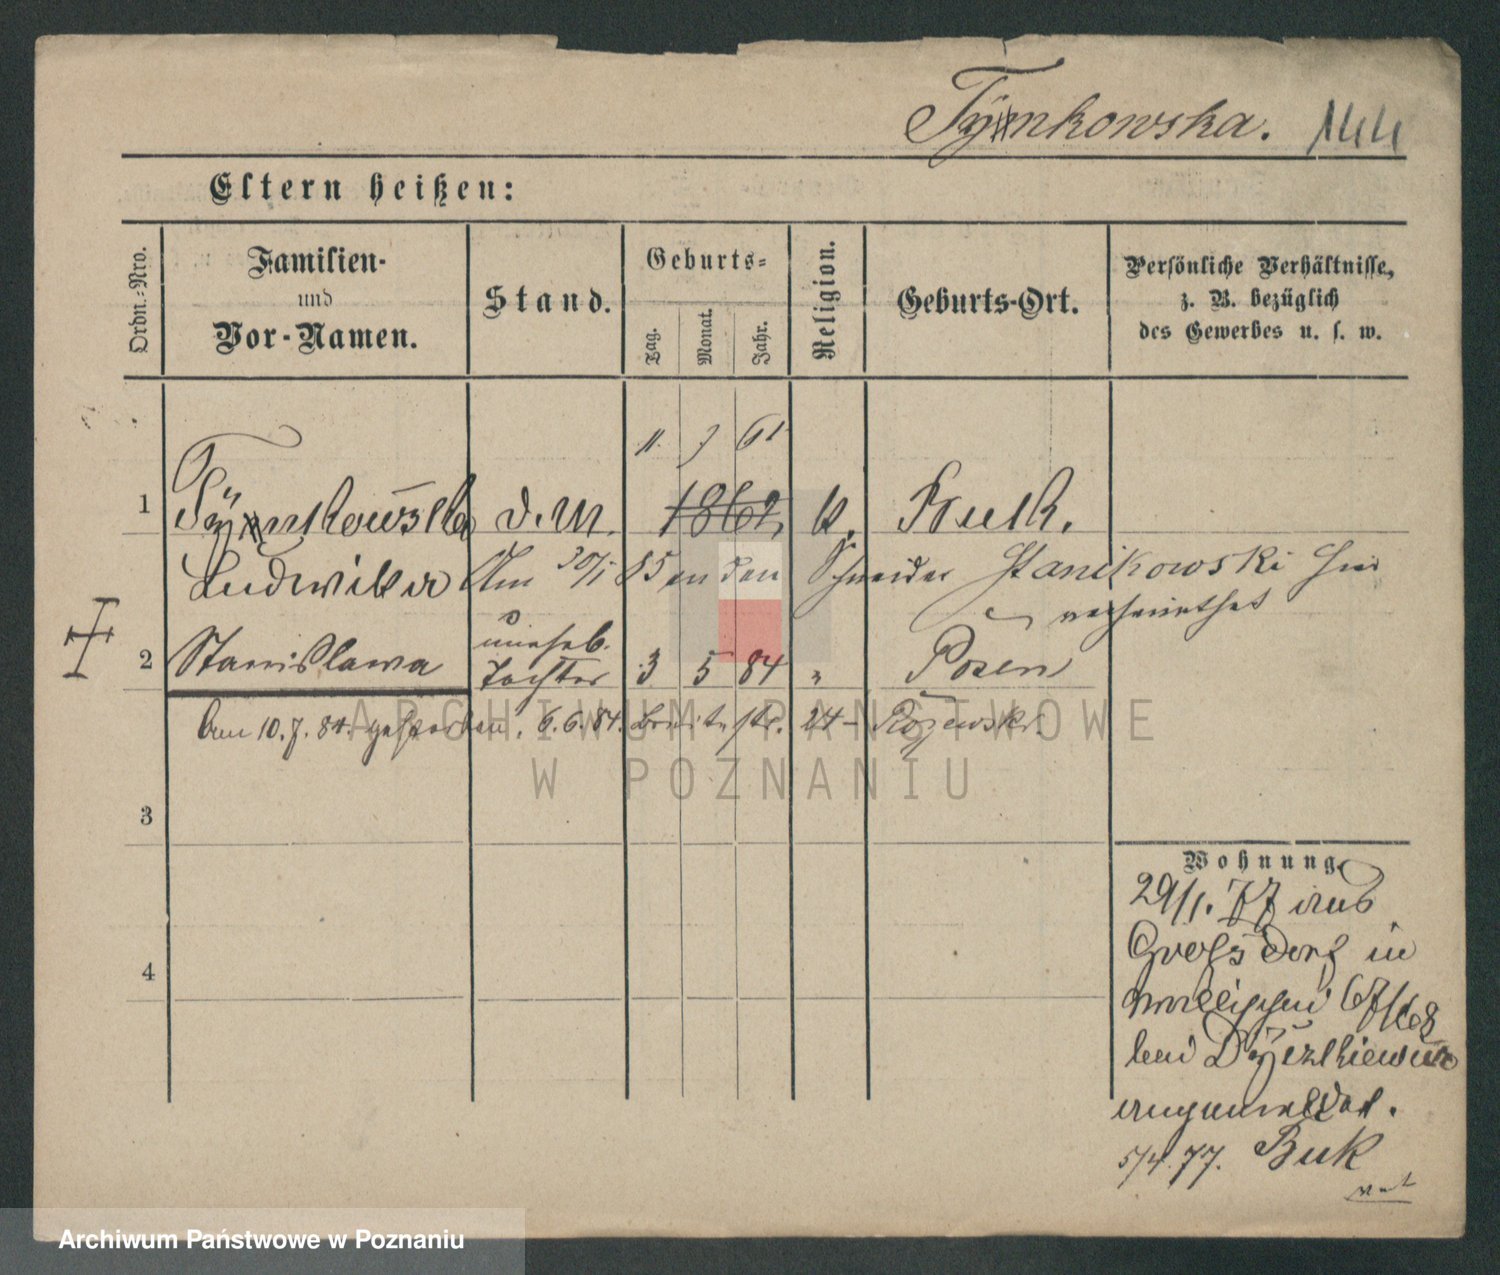 Tymkowska. 144
Eltern heißen:
Ordn.-Nro.
Familien-
und
Vor-Namen.
Stand.
Geburts-
Tag.
Monat.
Jahr.
Religion.
Geburts-Ort.
Persönliche Verhältnisse,
z. B. bezüglich
des Gewerbes u. s. w.
11. 7 61
1 Tymkowska d. M. 1862 k. Buk.
Ludwika Am 30/1 85 an den Schneider Stanikowski hier
verheirathet
2 Stanislawa unehel. Tochter 3 5 84 " Posen
am 10.7.84. gestorben. 6.6.84. Breitestr. 24
ARCHIWUM PAŃSTWOWE
W POZNANIU
3
4
Wohnung.
29/1. 77 aus
Grossdorf in
67/68
bei
angemeldet.
5/4. 77. Buk
Archiwum Państwowe w Poznaniu